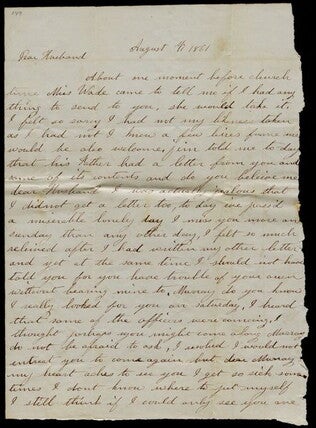 August 4th 1861
Dear Husband
About one moment before church
time Miss Wade came to tell me if I had any
thing to send to you, she would take it.
I felt so sorry I had not my likeness taken
as I had not I knew a few lines from me
would be also welcome, Jim told me to day
that his Father had a letter from you and
some of its contents and do you believe me
dear Husband I was actually jealous that
I did not get a letter too, to day we passed
a miserable lonely day I miss you more on
sunday than any other day, I felt so much
relieved after I had written my other letter
and yet at the same time I should not have
told you for you have trouble of your own
without hearing mine to, Murray do you know
I really looked for you on Saturday, I heard
that some of the officers were coming, I
thought perhaps you might come also, Murray
do not be afraid to ask, I wrote I would not
entreat you to come again but dear Murray
my heart aches to see you I get so sick some
times I dont know where to put myself
I still think if I could only see you one